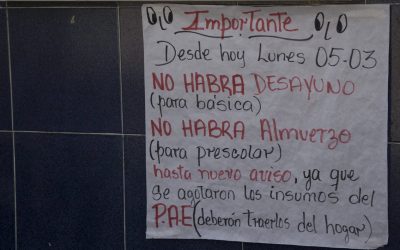 OJO Importante OJO
Desde hoy Lunes 05-03
NO HABRA DESAYUNO
(para básica)
NO HABRA Almuerzo
(para prescolar)
hasta nuevo aviso, ya que
se agotaron los insumos del
P.A.E (deberón traerlos del hogar)